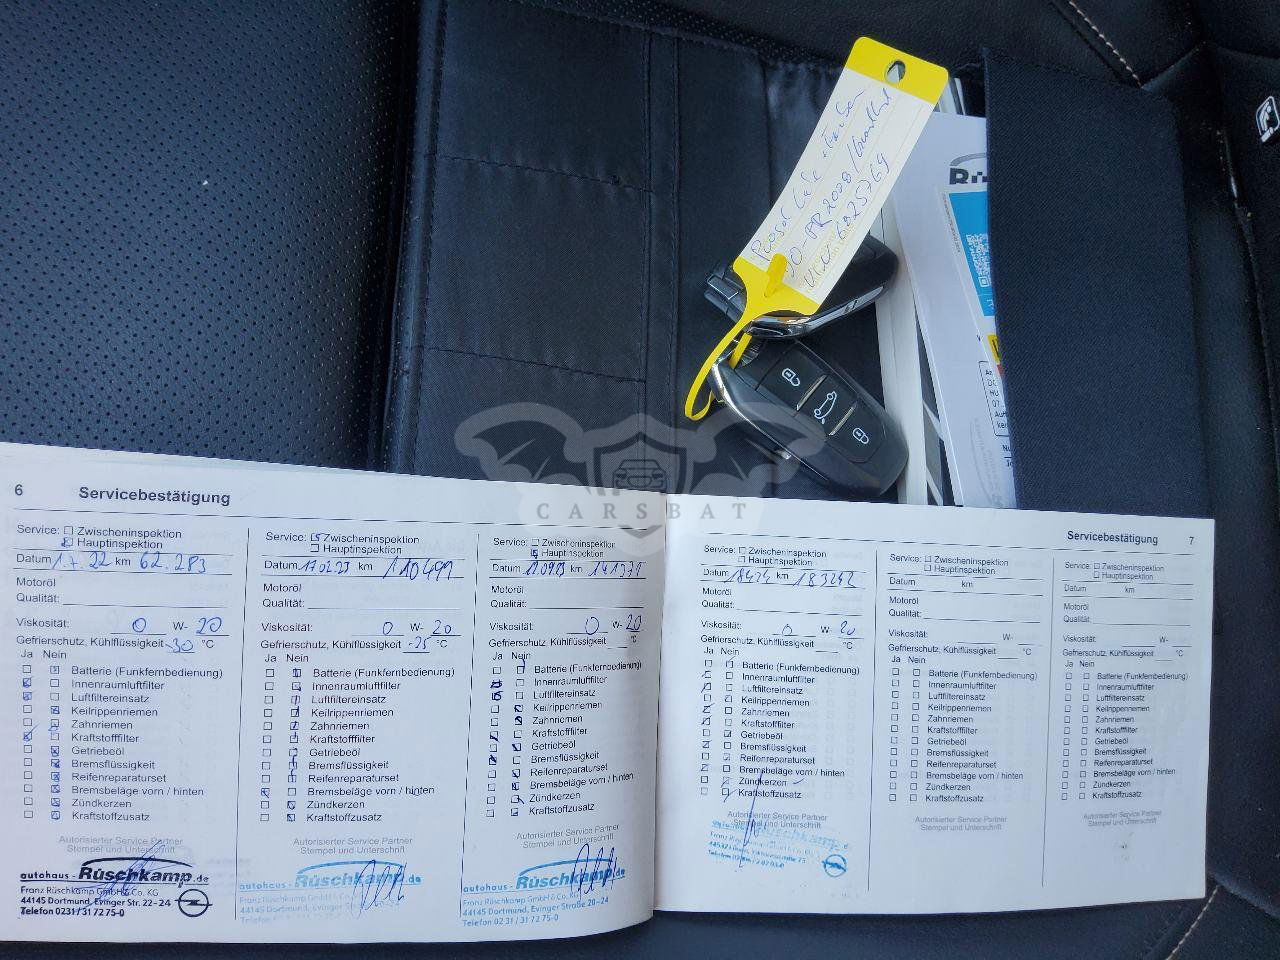 Rüs
CARSBAT
6 Servicebestätigung
Service: Zwischeninspektion
Hauptinspektion
Datum 1.7.22 km 62.283
Motoröl
Qualität:
Viskosität: 0 W- 20
Gefrierschutz, Kühlflüssigkeit -30 °C
Ja Nein
Batterie (Funkfernbedienung)
Innenraumluftfilter
Luftfiltereinsatz
Keilrippenriemen
Zahnriemen
Kraftstofffilter
Getriebeöl
Bremsflüssigkeit
Reifenreparaturset
Bremsbeläge vorn / hinten
Zündkerzen
Kraftstoffzusatz
Autorisierter Service Partner
Stempel und Unterschrift
autohaus - Rüschkamp.de
Franz Rüschkamp GmbH & Co. KG
44145 Dortmund, Evinger Str. 22-24
Telefon 0231/31 72 75-0
Service: Zwischeninspektion
Hauptinspektion
Datum 17.02.23 km 110491
Motoröl
Qualität:
Viskosität: 0 W- 20
Gefrierschutz, Kühlflüssigkeit -25 °C
Ja Nein
Batterie (Funkfernbedienung)
Innenraumluftfilter
Luftfiltereinsatz
Keilrippenriemen
Zahnriemen
Kraftstofffilter
Getriebeöl
Bremsflüssigkeit
Reifenreparaturset
Bremsbeläge vorn / hinten
Zündkerzen
Kraftstoffzusatz
Autorisierter Service Partner
Stempel und Unterschrift
autohaus - Rüschkamp.de
Franz Rüschkamp GmbH & Co. KG
44145 Dortmund, Evinger Straße 20-24
Telefon 02 31 / 31 72 75-0
Service: Zwischeninspektion
Hauptinspektion
Datum km
Motoröl
Qualität:
Viskosität: 0 W- 20
Gefrierschutz, Kühlflüssigkeit °C
Ja Nein
Batterie (Funkfernbedienung)
Innenraumluftfilter
Luftfiltereinsatz
Keilrippenriemen
Zahnriemen
Kraftstofffilter
Getriebeöl
Bremsflüssigkeit
Reifenreparaturset
Bremsbeläge vorn / hinten
Zündkerzen
Kraftstoffzusatz
Autorisierter Service Partner
Stempel und Unterschrift
autohaus - Rüschkamp.de
Franz Rüschkamp GmbH & Co. KG
44145 Dortmund, Evinger Straße 20-24
Telefon 02 31 / 31 72 75-0
Servicebestätigung 7
Service: Zwischeninspektion
Hauptinspektion
Datum km 183242
Motoröl
Qualität:
Viskosität: 0 W- 20
Gefrierschutz, Kühlflüssigkeit °C
Ja Nein
Batterie (Funkfernbedienung)
Innenraumluftfilter
Luftfiltereinsatz
Keilrippenriemen
Zahnriemen
Kraftstofffilter
Getriebeöl
Bremsflüssigkeit
Reifenreparaturset
Bremsbeläge vorn / hinten
Zündkerzen
Kraftstoffzusatz
Autorisierter Service Partner
Stempel und Unterschrift
Service: Zwischeninspektion
Hauptinspektion
Datum km
Motoröl
Qualität:
Viskosität: W-
Gefrierschutz, Kühlflüssigkeit °C
Ja Nein
Batterie (Funkfernbedienung)
Innenraumluftfilter
Luftfiltereinsatz
Keilrippenriemen
Zahnriemen
Kraftstofffilter
Getriebeöl
Bremsflüssigkeit
Reifenreparaturset
Bremsbeläge vorn / hinten
Zündkerzen
Kraftstoffzusatz
Autorisierter Service Partner
Stempel und Unterschrift
Service: Zwischeninspektion
Hauptinspektion
Datum km
Motoröl
Qualität:
Viskosität: W-
Gefrierschutz, Kühlflüssigkeit °C
Ja Nein
Batterie (Funkfernbedienung)
Innenraumluftfilter
Luftfiltereinsatz
Keilrippenriemen
Zahnriemen
Kraftstofffilter
Getriebeöl
Bremsflüssigkeit
Reifenreparaturset
Bremsbeläge vorn / hinten
Zündkerzen
Kraftstoffzusatz
Autorisierter Service Partner
Stempel und Unterschrift